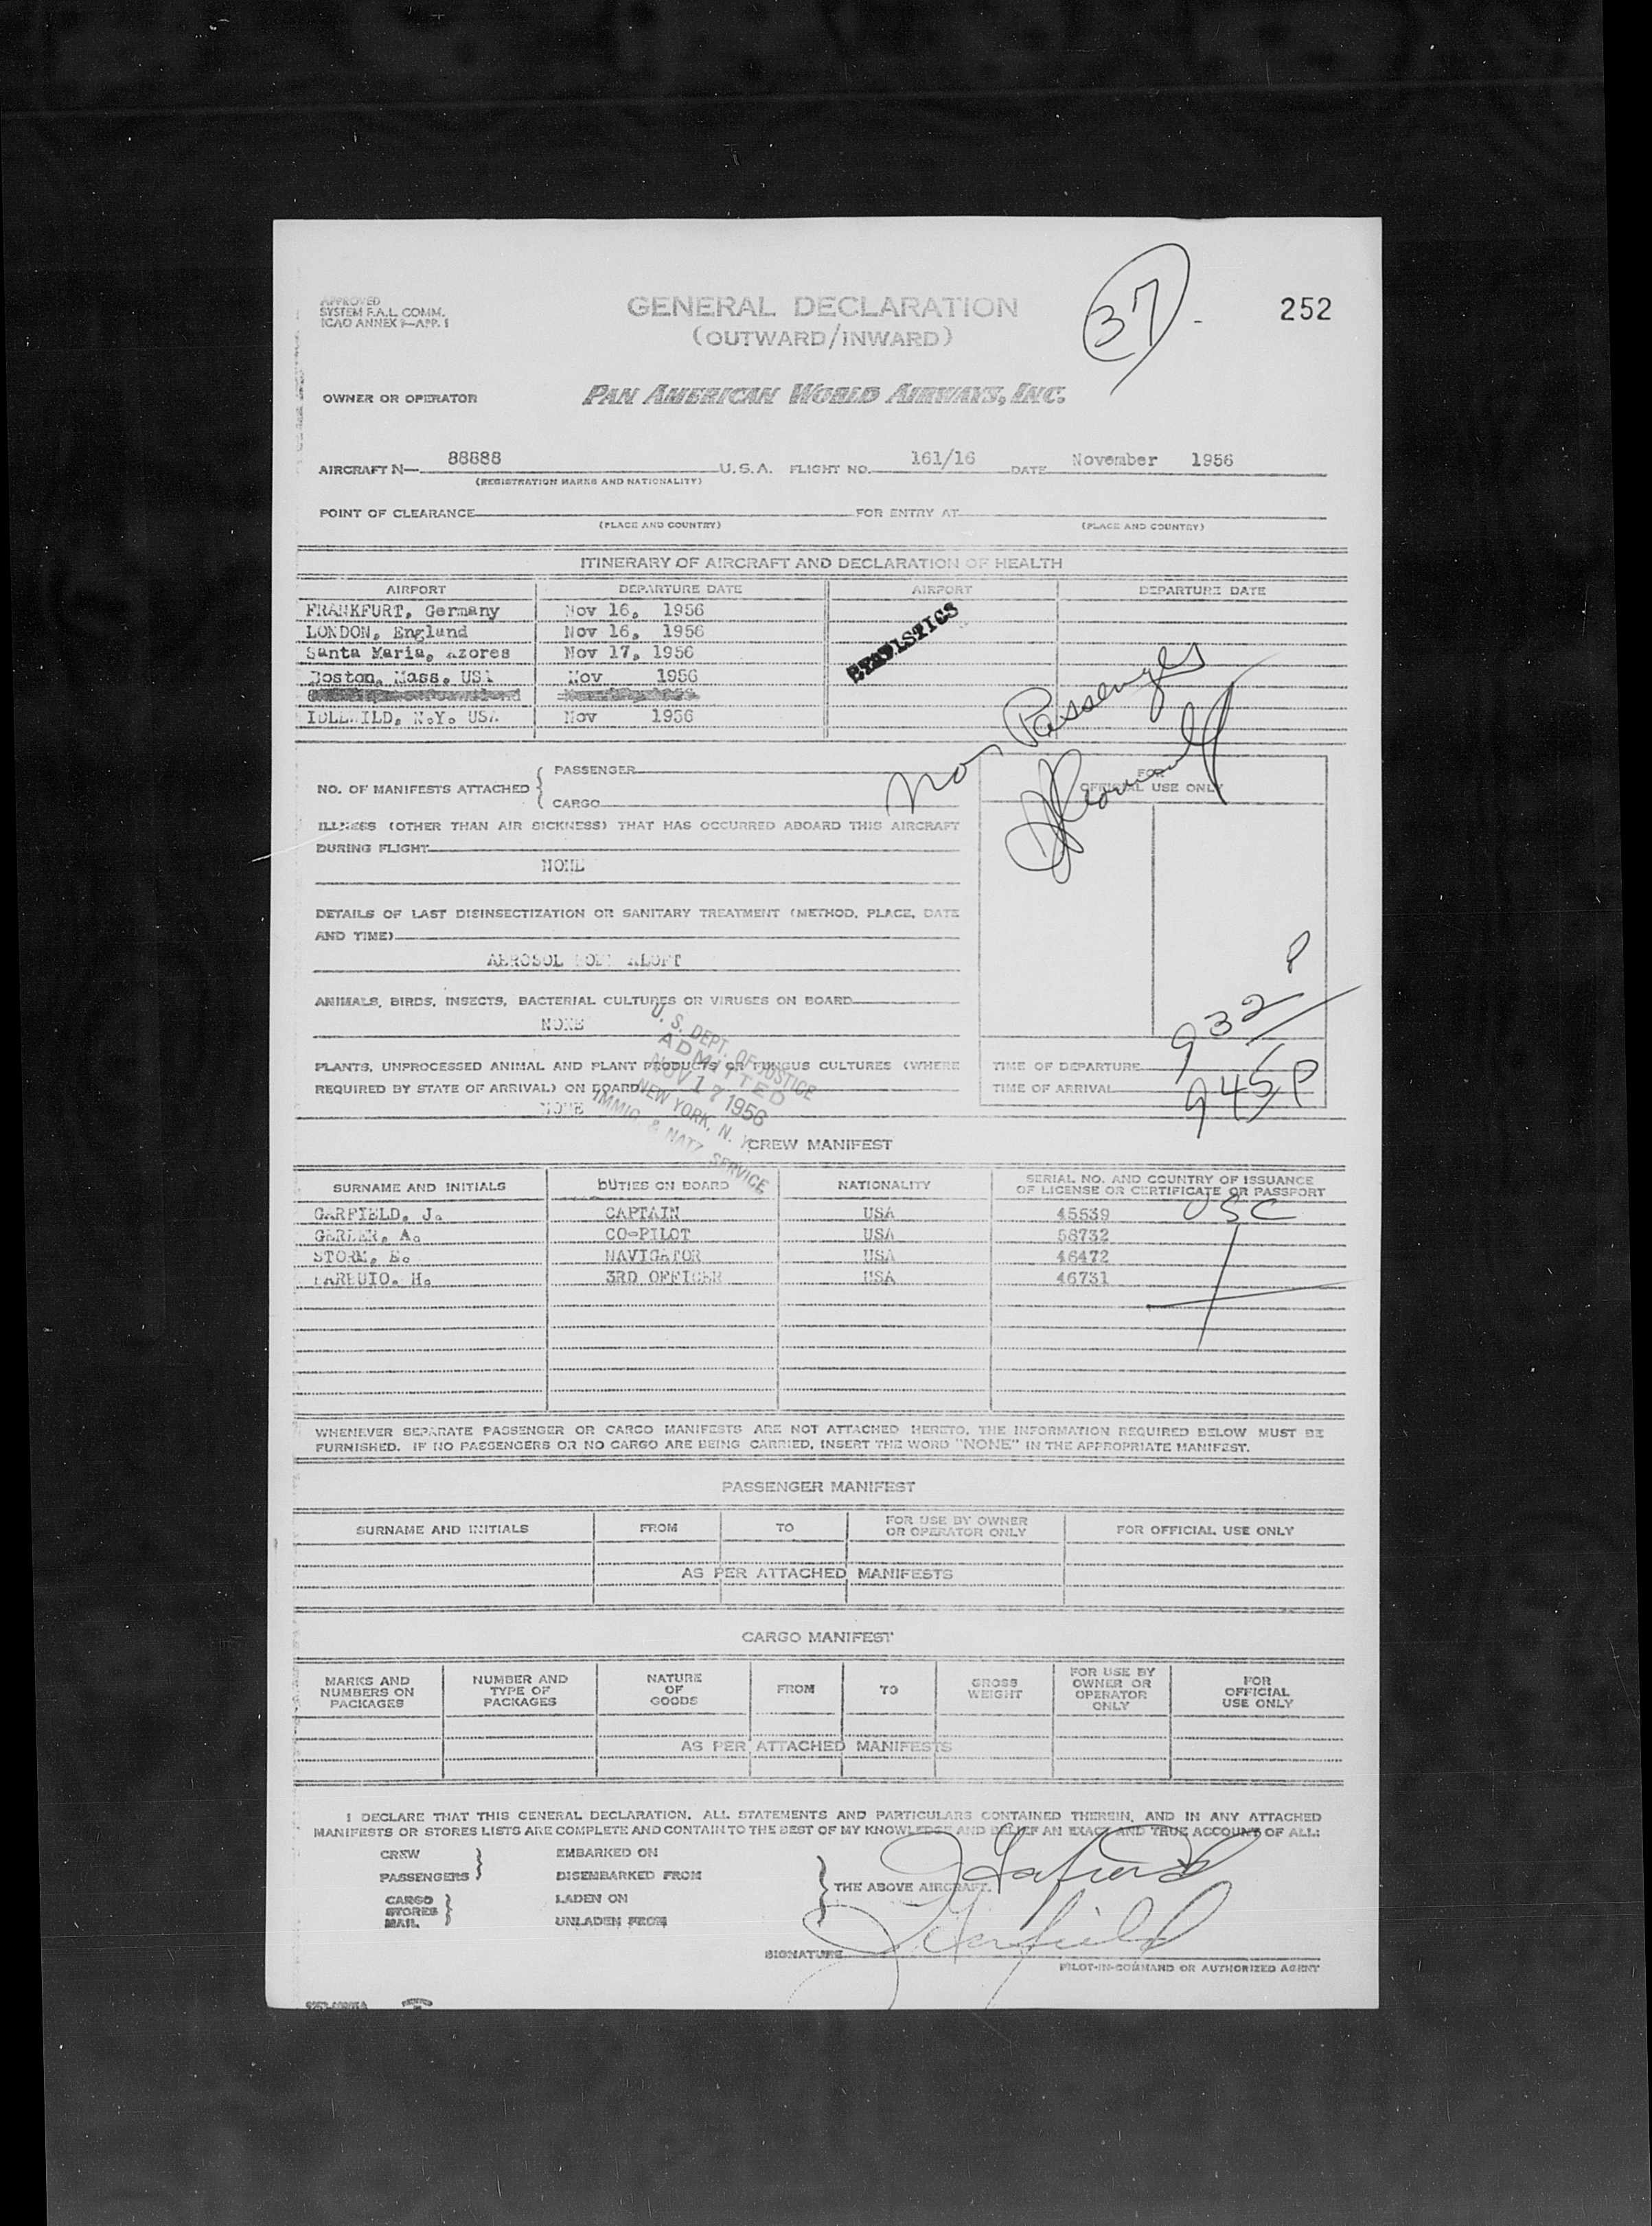 APPROVED
SYSTEM F.A.L. COMM.
ICAO ANNEX 9—APP. 1
GENERAL DECLARATION
(OUTWARD/INWARD)
37
252
OWNER OR OPERATOR
PAN AMERICAN WORLD AIRWAYS, INC.
AIRCRAFT N— 88888 U.S.A. FLIGHT NO. 161/16 DATE November 1956
(REGISTRATION MARKS AND NATIONALITY)
POINT OF CLEARANCE FOR ENTRY AT
(PLACE AND COUNTRY) (PLACE AND COUNTRY)
ITINERARY OF AIRCRAFT AND DECLARATION OF HEALTH
AIRPORT DEPARTURE DATE AIRPORT DEPARTURE DATE
FRANKFURT, Germany Nov 16, 1956
LONDON, England Nov 16, 1956
STATISTICS
Santa Maria, Azores Nov 17, 1956
Boston, Mass. USA Nov 1956
IDLEWILD, N.Y. USA Nov 1956
Non Passenger
NO. OF MANIFESTS ATTACHED { PASSENGER
CARGO
FOR
OFFICIAL USE ONLY
ILLNESS (OTHER THAN AIR SICKNESS) THAT HAS OCCURRED ABOARD THIS AIRCRAFT
DURING FLIGHT
NONE
DETAILS OF LAST DISINSECTIZATION OR SANITARY TREATMENT (METHOD, PLACE, DATE
AND TIME)
AEROSOL BOMB ALOFT
ANIMALS, BIRDS, INSECTS, BACTERIAL CULTURES OR VIRUSES ON BOARD
NONE
U. S. DEPT. OF JUSTICE
ADMITTED
NOV 17 1956
NEW YORK, N. Y.
IMMIG. & NATZ. SERVICE
PLANTS, UNPROCESSED ANIMAL AND PLANT PRODUCTS OR FUNGUS CULTURES (WHERE
REQUIRED BY STATE OF ARRIVAL) ON BOARD
NONE
TIME OF DEPARTURE 932 P
TIME OF ARRIVAL 945 P
CREW MANIFEST
SURNAME AND INITIALS DUTIES ON BOARD NATIONALITY SERIAL NO. AND COUNTRY OF ISSUANCE
OF LICENSE OR CERTIFICATE OR PASSPORT
GARFIELD, J. CAPTAIN USA 45539 USC
GERBER, A. CO-PILOT USA 58732
STORM, E. NAVIGATOR USA 46472
H. 3RD OFFICER USA 46731
WHENEVER SEPARATE PASSENGER OR CARGO MANIFESTS ARE NOT ATTACHED HERETO, THE INFORMATION REQUIRED BELOW MUST BE
FURNISHED. IF NO PASSENGERS OR NO CARGO ARE BEING CARRIED, INSERT THE WORD "NONE" IN THE APPROPRIATE MANIFEST.
PASSENGER MANIFEST
SURNAME AND INITIALS FROM TO FOR USE BY OWNER
OR OPERATOR ONLY FOR OFFICIAL USE ONLY
AS PER ATTACHED MANIFESTS
CARGO MANIFEST
MARKS AND
NUMBERS ON
PACKAGES
NUMBER AND
TYPE OF
PACKAGES
NATURE
OF
GOODS
FROM
TO
GROSS
WEIGHT
FOR USE BY
OWNER OR
OPERATOR
ONLY
FOR
OFFICIAL
USE ONLY
AS PER ATTACHED MANIFESTS
I DECLARE THAT THIS GENERAL DECLARATION, ALL STATEMENTS AND PARTICULARS CONTAINED THEREIN, AND IN ANY ATTACHED
MANIFESTS OR STORES LISTS ARE COMPLETE AND CONTAIN TO THE BEST OF MY KNOWLEDGE AND BELIEF AN EXACT AND TRUE ACCOUNT OF ALL:
CREW EMBARKED ON
PASSENGERS DISEMBARKED FROM
THE ABOVE AIRCRAFT.
CARGO LADEN ON
STORES
MAIL UNLADEN FROM
J Garfield
J Garfield
SIGNATURE
PILOT-IN-COMMAND OR AUTHORIZED AGENT